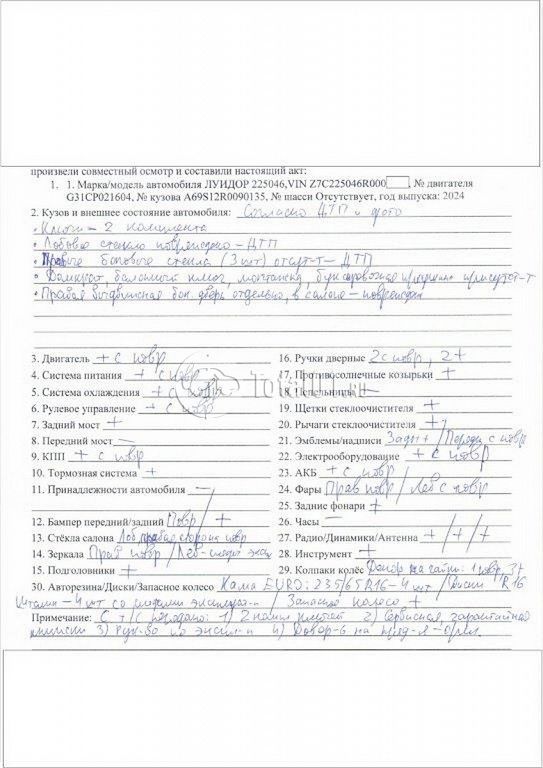 произвели совместный осмотр и составили настоящий акт:
1. 1. Марка/модель автомобиля ЛУИДОР 225046,VIN Z7C225046R000 , № двигателя
G31CP021604, № кузова A69S12R0090135, № шасси Отсутствует, год выпуска: 2024
2. Кузов и внешнее состояние автомобиля: Согласно ДТП и фото
• Ключи – 2 комплекта
• Лобовое стекло повреждено – ДТП
• Правые боковые стекла (3 шт) отсут-т – ДТП
• Домкрат, балонный ключ, монтажка, буксировочная
• Правая бок. дверь отдельно, в салоне – повреждён
3. Двигатель + с повр
16. Ручки дверные 2 с повр, 2+
4. Система питания + с повр
17. Противосолнечные козырьки +
5. Система охлаждения + с повр
18. Пепельницы —
6. Рулевое управление + с повр
19. Щетки стеклоочистителя +
7. Задний мост +
20. Рычаги стеклоочистителя +
8. Передний мост —
21. Эмблемы/надписи Задн + / Передн с повр
9. КПП + с повр
22. Электрооборудование + с повр
10. Тормозная система +
23. АКБ + с повр
11. Принадлежности автомобиля —
24. Фары Прав повр / Лев с повр
25. Задние фонари +
12. Бампер передний/задний Повр / +
26. Часы —
13. Стёкла салона Лоб, правая сторона повр
27. Радио/Динамики/Антенна + / + / +
14. Зеркала Прав повр / Лев –
28. Инструмент +
15. Подголовники +
29. Колпаки колёс на гайки: 1 повр, 3+
30. Авторезина/Диски/Запасное колесо Кама EURO: 235/65 R16 – 4 шт / Диски R16
штамп – 4 шт со следами эксплуат-и / Запасное колесо +
Примечание: С т/с передано: 1) 2 ключа 2) Сервисная, гарантийная
книжки 3) Рук-во по экспл-и 4)
TOTAL01.RU